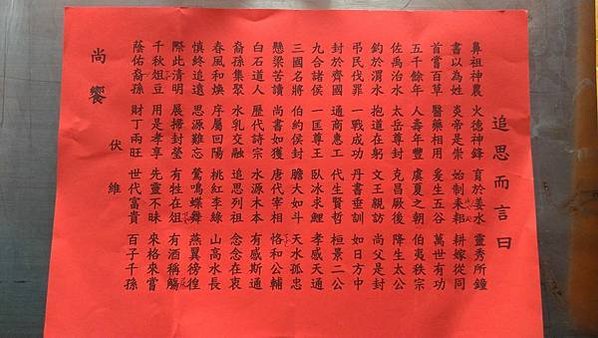 追思而言曰
鼻祖神農 火德神鋒 育於姜水 靈秀所鐘
書以為姓 炎帝是崇 始制耒耜 耕嫁從同
首嘗百草 醫藥相用 爰生五谷 萬世有功
五千餘年 人壽年豐 虞夏之朝 伯夷秩宗
佐禹治水 太岳尊封 克昌厥後 降生太公
釣於渭水 抱道在躬 文王親訪 尚父是封
弔民伐罪 一戰成功 丹書垂訓 如日方中
封於齊國 通商惠工 代生賢哲 桓景二公
九合諸侯 一匡尊王 臥冰求鯉 孝感天通
三國名將 伯約侯封 膽大如斗 天水孤忠
懸梁苦讀 尚書如獲 唐代宰相 恪和公輔
白石道人 歷代詩宗 水源木本 有感斯通
裔孫集聚 水乳交融 追思列祖 念念在衷
春風和煥 序屬回陽 桃紅李綠 山高水長
慎終追遠 思源難忘 鶯鳴蝶舞 燕翼徬徨
際此清明 展掃封塋 有牲在俎 有酒稱觴
千秋俎豆 用是孝享 先靈不昧 來格來嘗
蔭佑裔孫 財丁兩旺 世代富貴 百子千孫
伏維
尚饗